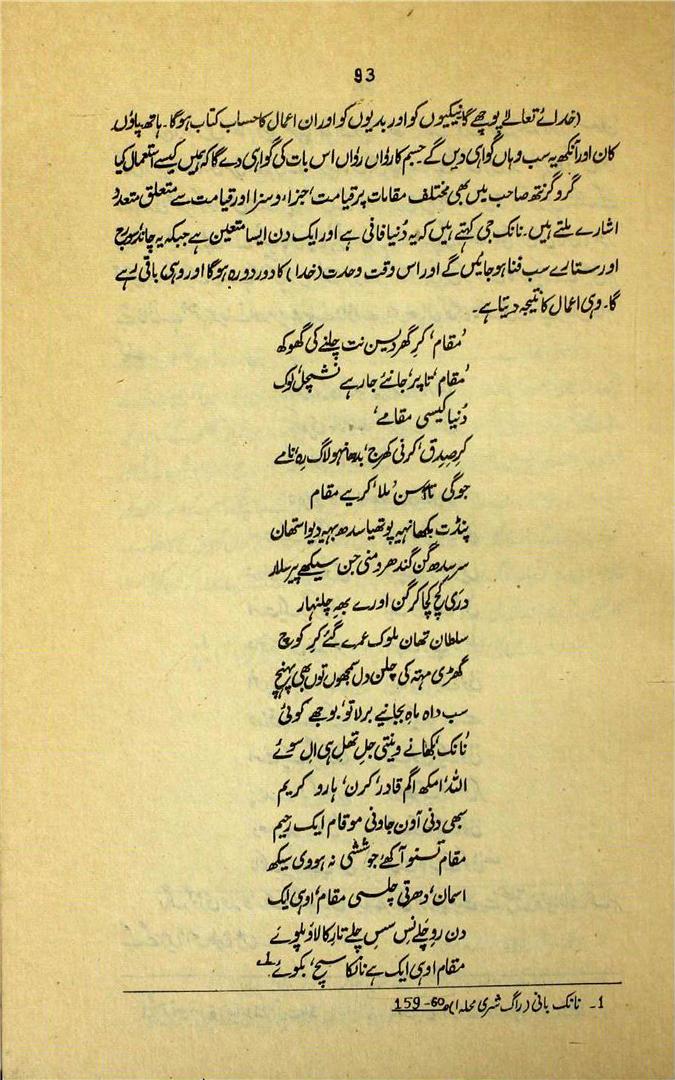 93
(خدائے تعالےٰ پوچھے گا نیکیوں کو اور بدیوں کو اور ان اعمال کا حساب کتاب ہوگا۔ ہاتھ پاؤں
کان اور آنکھ یہ سب وہاں گواہی دیں گے جسم کا رواں رواں اس بات کی گواہی دے گا کہ ہمیں کیسے استعمال کیا
گرو گرنتھ صاحب میں بھی مختلف مقامات پر قیامت، جزا، و سزا اور قیامت سے متعلق متعدد
اشارے ملتے ہیں۔ نانک جی کہتے ہیں کہ یہ دُنیا فانی ہے اور ایک دن ایسا متعین ہے جبکہ یہ چاند سورج
اور ستارے سب فنا ہو جائیں گے اور اس وقت وحدت (خدا) کا دور دورہ ہوگا اور وہی باقی رہے
گا۔ وہی اعمال کا نتیجہ دیتا ہے۔
'مقام' کرِ گھر ویسن نت چلنے کی گھوکھ
'مقام' تا پر' جانئے جا رہے نشچل' لوک
دُنیا کیسی مقامے'
کرِ صدق' کرنی کھرچ' بدھانہو لاگ رہ' نامے
جوگی تا سن' ملا' کریے مقام
پنڈت بکھانہیہ پوتھیا سدھ بہیہ دیو استھان
سر سدھ گن گندھرو منی جن سیکھ پیر سلار
دری کچ کچا کر گن اورے بھہ چلنہار
سلطان تھان ملوک عمرے گئے کرِ کوچ
گھڑی مہتہ کی چلن دل سمجھوں توں بھی پہنچ
سب داہ ماہ بجانیے برلا تو' بوجھے کوئی
'نانک' بکھانے وینتی جل تھل ہی ال سوئے
اللہ' امکھ اگم قادر' کرن' ہارو کریم
سبھی دنی آون جاونی موقام ایک رحیم
مقام تسنو آکھئے جو ششی نہ ہووی سیکھ
اسمان' دھرتی چلسی مقام' اوہی ایک
دن رو چلے نس سس چلے تار کا لاؤ پلوئے
مقام اوہی ایک ہے نانکا سچ' بکوئے ۱؎
1۔ نانک بانی (راگ شری محلہ ا) ص 60–159